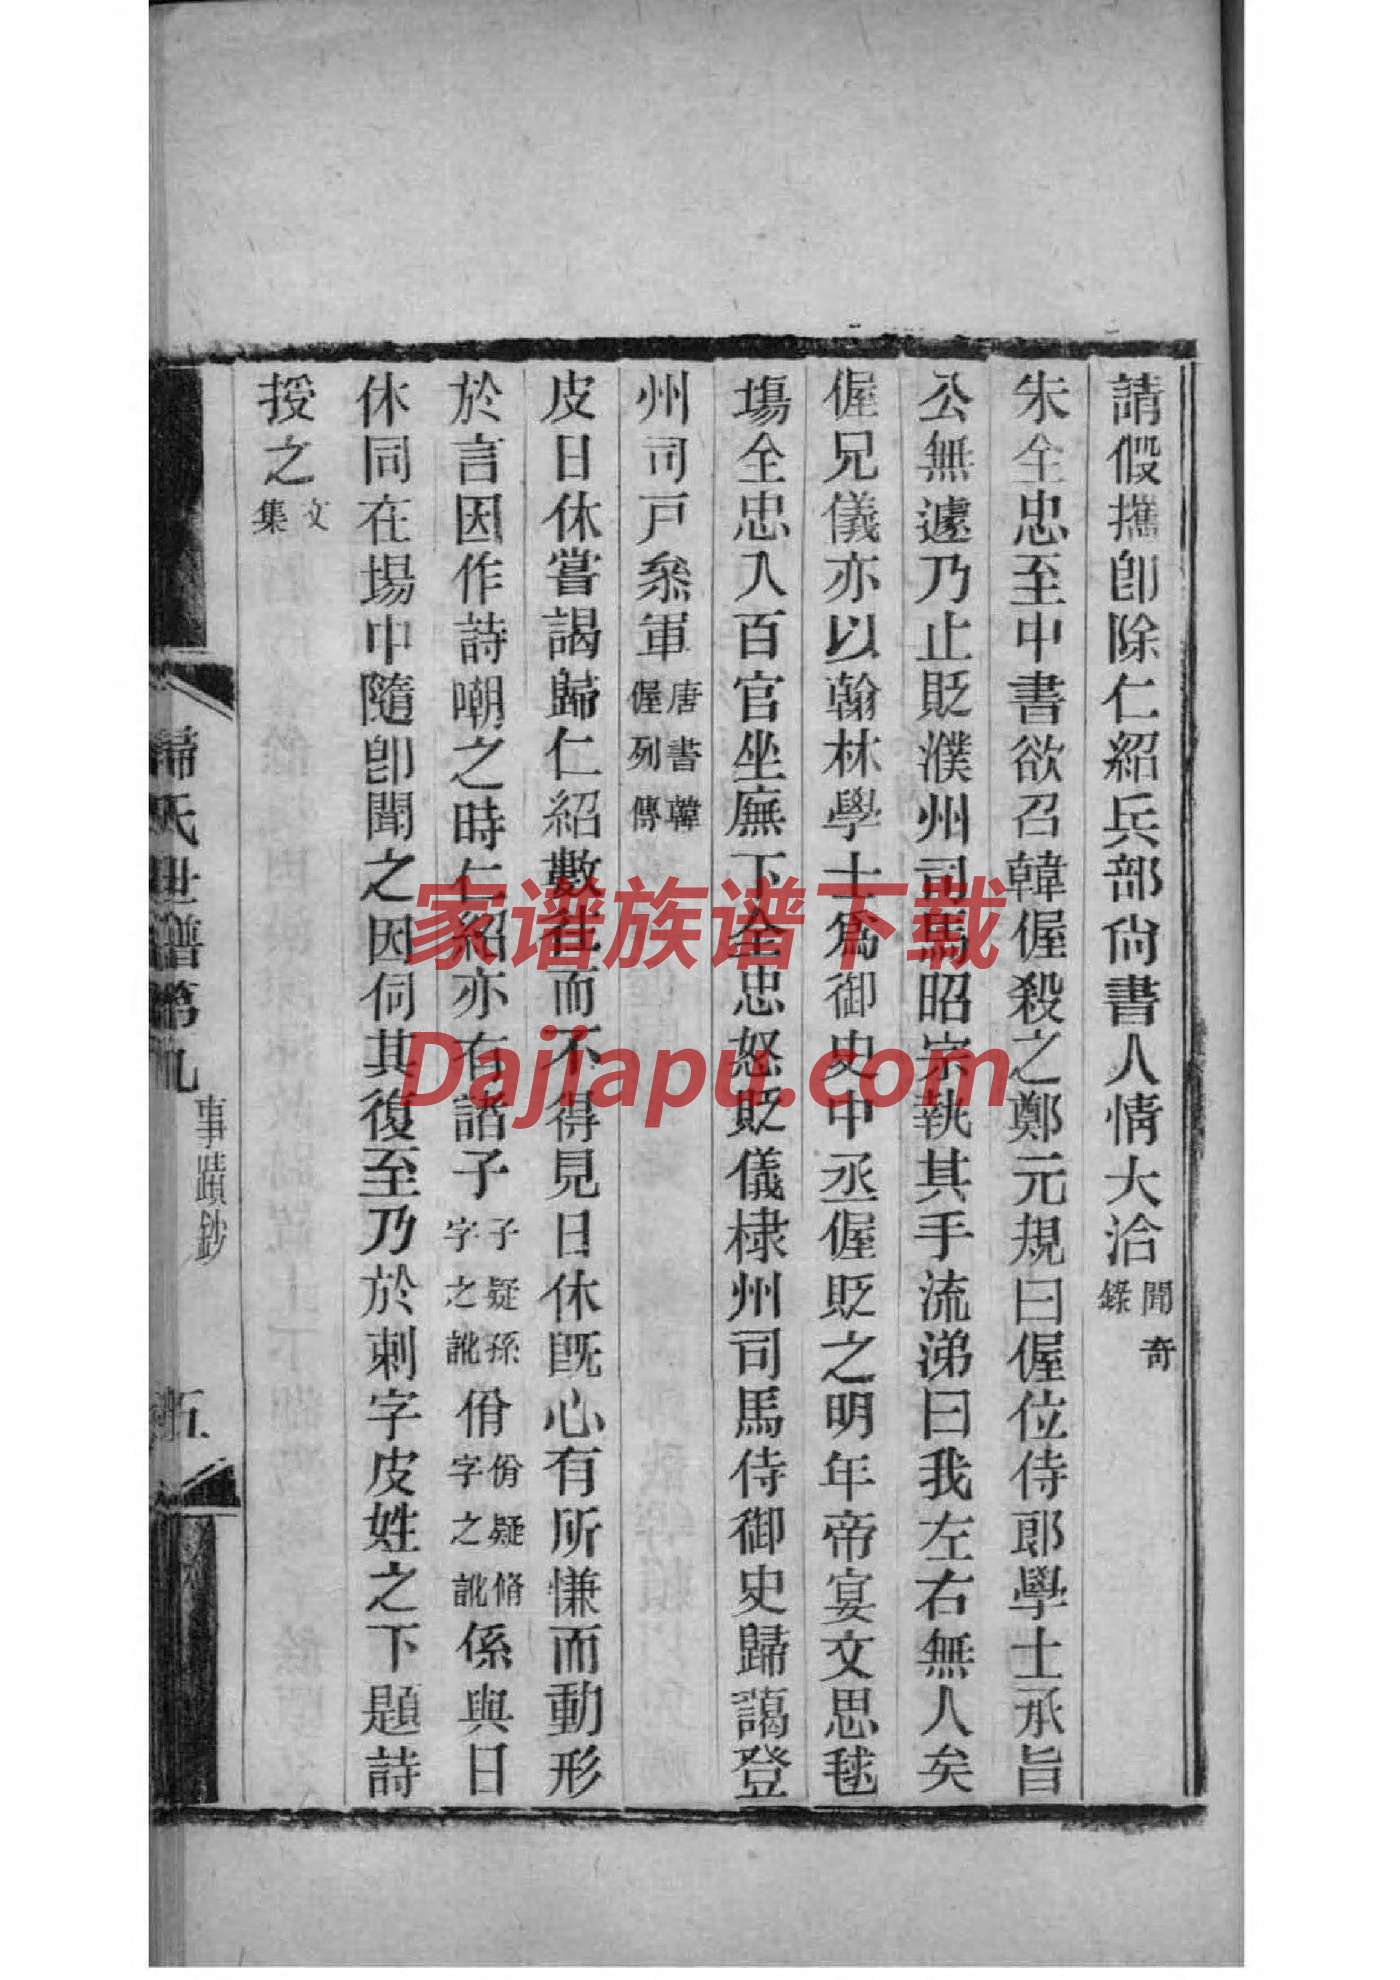 請假攜卽除仁紹兵部尙書人情大洽聞奇錄
朱全忠至中書欲召韓偓殺之鄭元規曰偓位侍郞學士承旨
公無遽乃止貶濮州司馬昭宗執其手流涕曰我左右無人矣
偓兄儀亦以翰林學士爲御史中丞偓貶之明年帝宴文思毬
場全忠入百官坐廡下全忠怒貶儀棣州司馬侍御史歸藹登
州司戸叅軍唐書韓偓列傳
皮日休嘗謁歸仁紹數往而不得見日休旣心有所慊而動形
於言因作詩嘲之時仁紹亦有諮子子疑孫字之訛佾佾疑脩字之訛係與日
休同在場中隨卽聞之因伺其復至乃於刺字皮姓之下題詩
授之文集
歸氏世譜第九
事蹟鈔
五
家谱族谱下载
Dajiapu.com